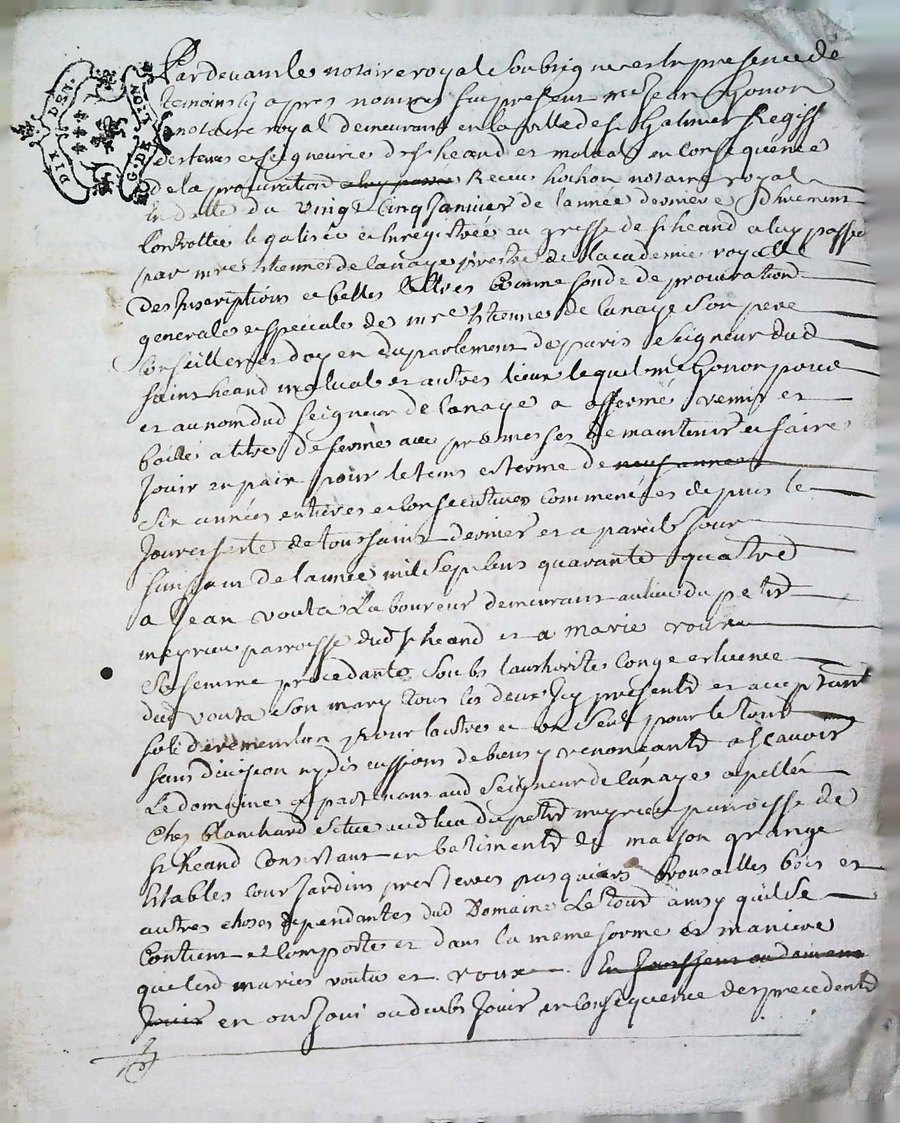 DIX DSN.
G. DE LION
Pardevant le notaire royal soubsigne et en presence des
temoins cy apres nommes fut present me Jean Gonon
notaire royal demeurant en la ville de st Galmier Regiss
des terres et seigneurie de st heand et malval en consequence
de la procuration a luy passee Receue hochon notaire royal
en datte du vingt cinq Janvier de l'année derniere dhuement
Controllée legalisée et Enregistrée au greffe de st heand a luy passée
par mre Etienne de lanaye prestre de l'academie royalle
des Inscriptions et belles lettres comme fondé de procuration
generale et speciale de mre Etienne de lanaye son pere
conseiller et doyen du parlement de paris seigneur dud
saint heand malval et autres lieux lequel me Gonon pour
et au nom dud seigneur de lanaye a affermé remis et
baillé a titre de ferme avec promesses de maintenir et faire
Jouir en paix pour le tems et terme de neuf années
Six années entieres et consecutives commencées depuis le
Jour et feste de toussaint dernier et a pareil Jour
finissant de l'année mil sept cens quarante quatre
a Jean vouta Laboureur demeurant au lieu du petit
meprieu parroisse dud st heand et a marie roux
Sa femme procedante soubs l'authorité conge et licence
dud vouta son mary tous les deux Icy presents et acceptant
solidairement l'un pour l'autre et un seul pour le tout
sans division ny discussions de biens y renonceants a scavoir
Le domaine apartenant aud Seigneur de lanaye apellée
Chez Blanchard situé aud lieu du petit meprieu parroisse de
st heand Consistant en batiments de maison grange
Estables cour Jardins pres terres pasquiers brousailles bois et
autres choses dependantes dud Domaine Le tout ainsy quil se
Contient et Comporte et dans la meme forme et maniere
que lesd maries vouta et roux En Jouissent ou doivent
Jouir en ont Joui ou dubs Jouir en consequence des precedents